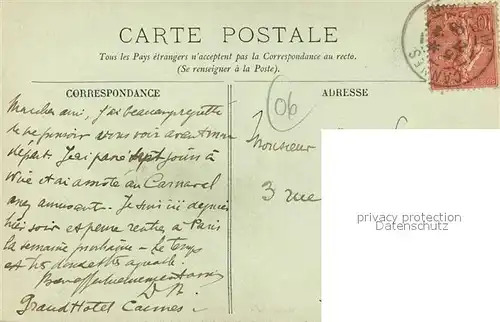 CARTE POSTALE
Tous les Pays étrangers n'acceptent pas la Correspondance au recto.
(Se renseigner à la Poste).
CORRESPONDANCE
ADRESSE
06
CANNES
Mon cher ami, j'ai beaucoup regretté
de ne pouvoir vous voir avant mon
départ. J'ai passé sept jours à
Nice et ai assisté au Carnaval
assez amusant. Je suis ici depuis
hier soir et pense rentrer à Paris
la semaine prochaine - Le temps
est très doux et très agréable.
Bien affectueusement à vous
D R.
Grand Hotel Cannes
Monsieur
3 rue
privacy protection
Datenschutz